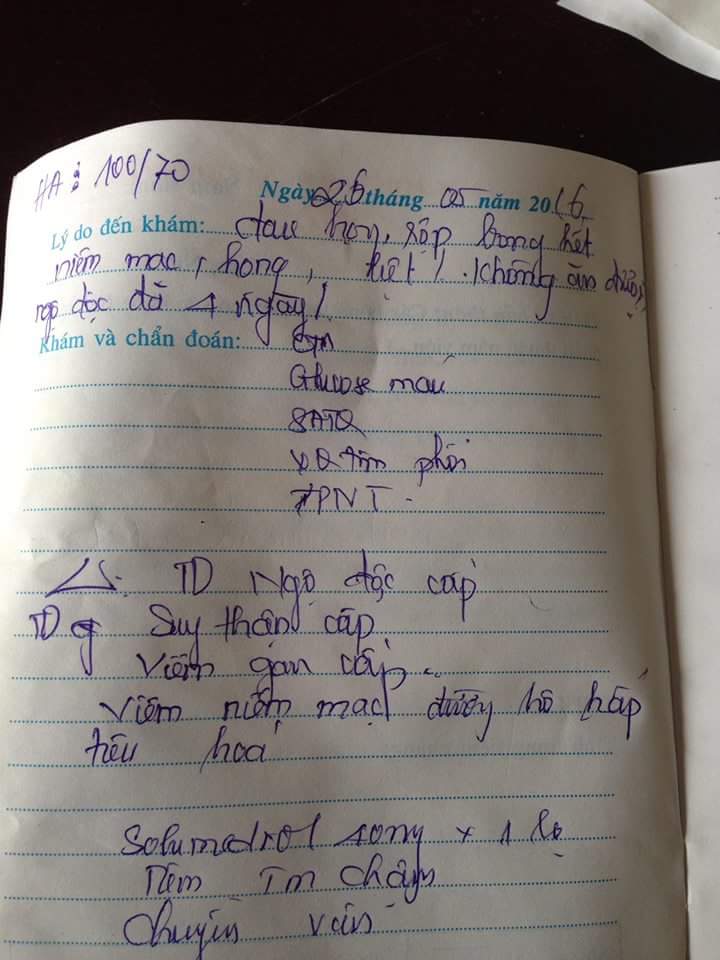 HA : 100/70
Ngày 26 tháng 05 năm 2016
Lý do đến khám: đau họng, xốp bong hết
niêm mạc, họng, . Không ăn được,
ngộ độc đã 4 ngày /.
Khám và chẩn đoán:
Glucose máu
SATQ
XQ tim phổi
TPNT
Δ. TD Ngộ độc cấp
TD Suy thận cấp
Viêm gan cấp
Viêm niêm mạc đường hô hấp
tiêu hoá
Solumedrol 40mg x 1 lọ
Tiêm TM chậm
Chuyển viện